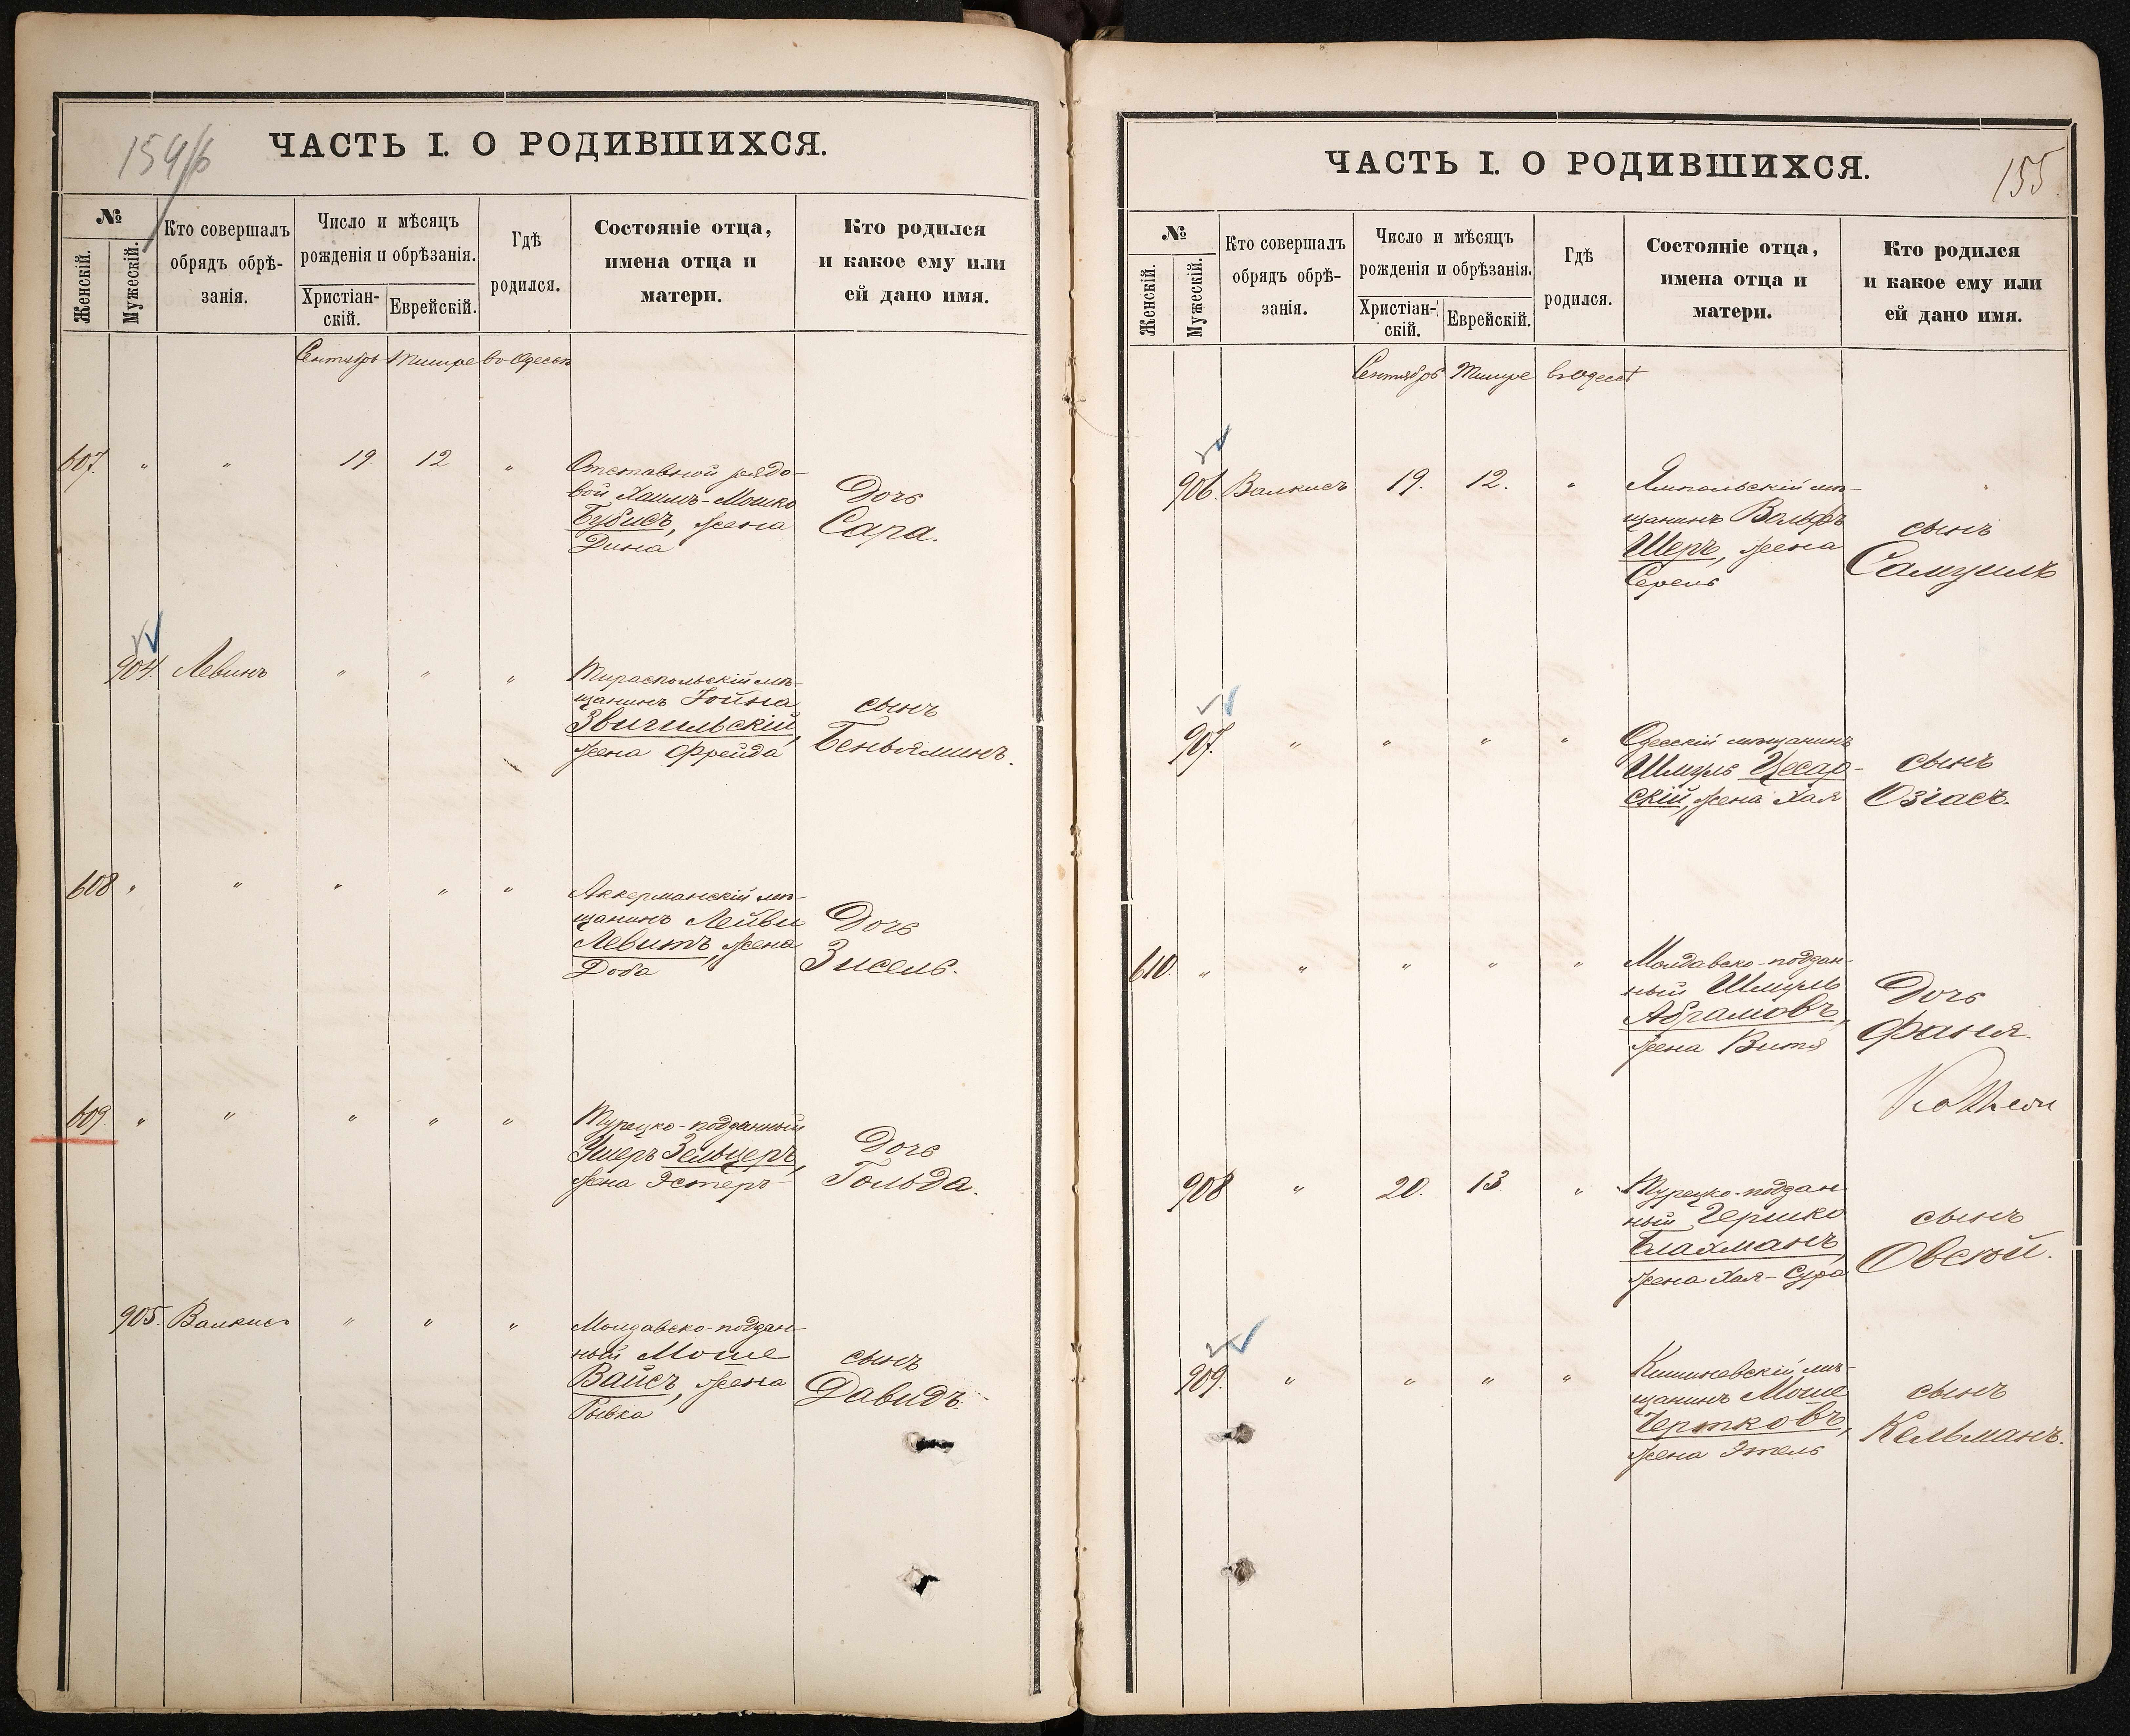 154/б
ЧАСТЬ I. О РОДИВШИХСЯ.
№
Женскій.
Мужескій.
Кто совершалъ
обрядъ обрѣ-
занія.
Число и мѣсяцъ
рожденія и обрѣзанія.
Христіан-
скій.
Еврейскій.
Гдѣ
родился.
Состояніе отца,
имена отца и
матери.
Кто родился
и какое ему или
ей дано имя.
Сентябрь Тишре во Одессѣ
607. " " 19. 12 "
Отставной рядо-
вой Хаимъ-Мошко
Бубисъ, жена
Дина
Дочь
Сара.
904. Левинъ " " "
Тираспольскій мѣ-
щанинъ Іойна
Звигильскій,
жена Фрейда
сынъ
Беньяминъ.
608 " " " " "
Аккерманскій мѣ-
щанинъ Лейви
Левитъ, жена
Доба
Дочь
Зисель.
609. " " " " "
Турецко-подданный
Ушеръ Зельцеръ,
жена Эстеръ
Дочь
Гольда.
905. Валкисъ " " "
Молдавско-поддан-
ный Моше
Вайсъ, жена
Рывка
сынъ
Давидъ.
155.
ЧАСТЬ I. О РОДИВШИХСЯ.
№
Женскій.
Мужескій.
Кто совершалъ
обрядъ обрѣ-
занія.
Число и мѣсяцъ
рожденія и обрѣзанія.
Христіан-
скій.
Еврейскій.
Гдѣ
родился.
Состояніе отца,
имена отца и
матери.
Кто родился
и какое ему или
ей дано имя.
Сентябрь Тишре въ Одессѣ
906. Валкисъ 19. 12. "
Ямпольскій мѣ-
щанинъ Вольфъ
Шеръ, жена
Серель
сынъ
Самуилъ
907. " " " "
Одесскій мѣщанинъ
Шмуль Цесар-
скій, жена Хая
сынъ
Озіасъ.
610. " " " " "
Молдавско-поддан-
ный Шмуль
Абрамовъ,
жена Витя
Дочь
Фаня.
908 " 20. 13 "
Турецко-поддан
ный Гершко
Блахманъ,
жена Хая-Сура
сынъ
Овсѣй.
909. " " " "
Кишиневскій мѣ-
щанинъ Моше
Чертковъ,
жена Этель
сынъ
Кельманъ.